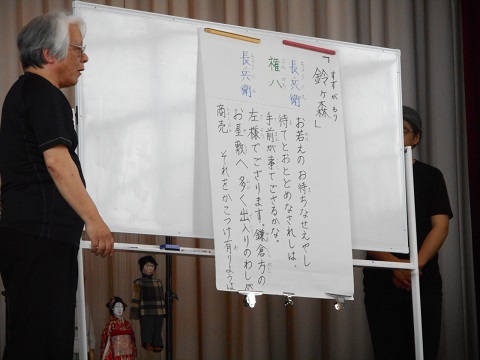 「鈴ヶ森」
すずがもり
長兵衛
ちょうべえ
お若えの お待ちなせえやし
権八
ごんぱち
待てとおとどめなされしは、
手前が事でござるかな。
長兵衛
左様でござります。鎌倉方の
お屋敷へ 多く出入りのわし
商売 それをかこつけ有りようは